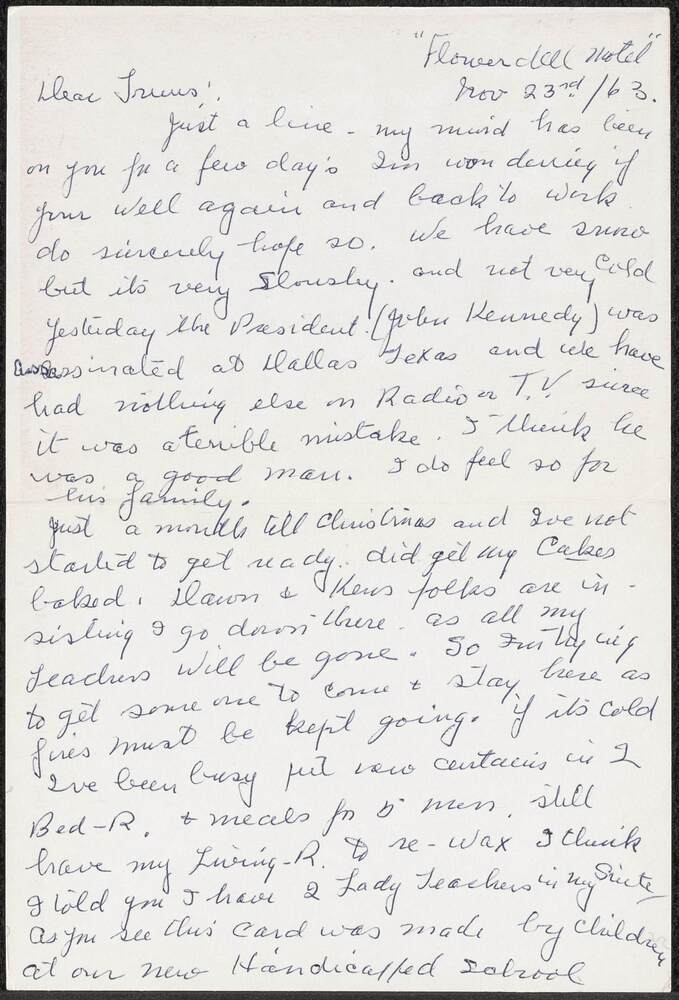 "Flowerdell Motel"
Nov 23rd/63.
Dear
Just a line - my mind has been
on you for a few day's Im wonderring if
your well again and back to work
do sincerely hope so. We have snow
but its very Sloushy. and not very Cold
Yesterday the President (John Kennedy) was
assassinated at Dallas Texas and we have
had nothing else on Radio or T.V. since
it was a terrible mistake. I think he
was a good man. I do feel so for
his family.
Just a month till Christmas and Ive not
started to get ready. did get my Cakes
baked. Dawn & Kens folks are in -
sisting I go down there. as all my
Teachers will be gone. So Im trying
to get some one to come & stay here as
fires must be kept going. if its cold
Ive been busy put new curtains in 2
Bed-R. & meals for 5 men. still
have my Living-R. to re-wax I think
I told you I have 2 Lady Teachers in my Suite
as you see this Card was made by Children
at our new Handicapped School